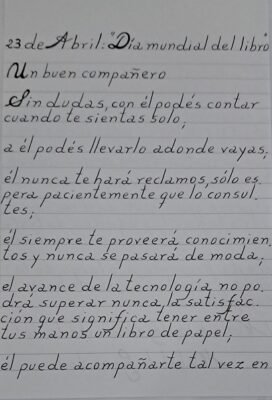 23 de Abril: "Día mundial del libro"
Un buen compañero
Sin dudas, con él podés contar
cuando te sientas solo;
a él podés llevarlo adonde vayas;
él nunca te hará reclamos, sólo es
pera pacientemente que lo consul-
tes;
él siempre te proveerá conocimien-
tos y nunca se pasará de moda;
el avance de la tecnología no po-
drá superar nunca, la satisfac-
ción que significa tener entre
tus manos un libro de papel;
él puede acompañarte tal vez en